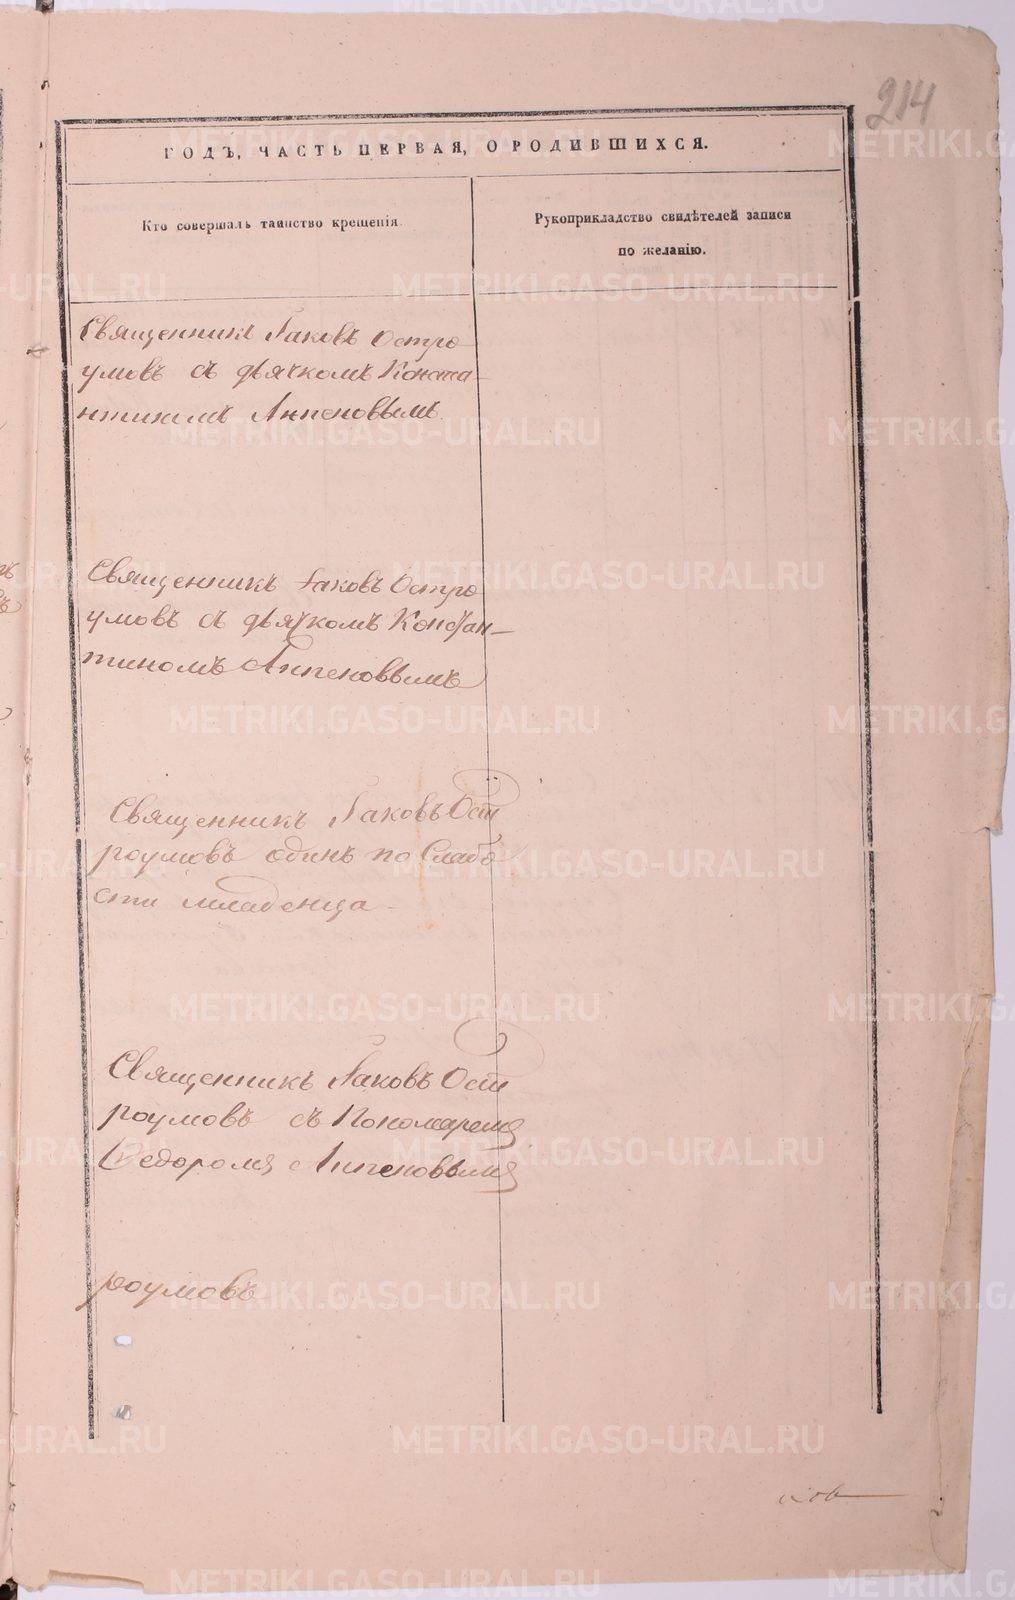 214
ГОДЪ, ЧАСТЬ ПЕРВАЯ, О РОДИВШИХСЯ.
Кто совершалъ таинство крещенія.
Рукоприкладство свидѣтелей записи
по желанію.
Священникъ Іаковъ Остро
умовъ съ дьячкомъ Конста-
нтиномъ Анпеновымъ
Священникъ Іаковъ Остро
умовъ съ дьячкомъ Констан-
тиномъ Анпеновымъ
Священникъ Іаковъ Ост
роумовъ одинъ по слабо
сти младенца
Священникъ Іаковъ Ост
роумовъ съ Пономаремъ
Ѳедоромъ Анпеновымъ
роумовъ
METRIKI.GASO-URAL.RU